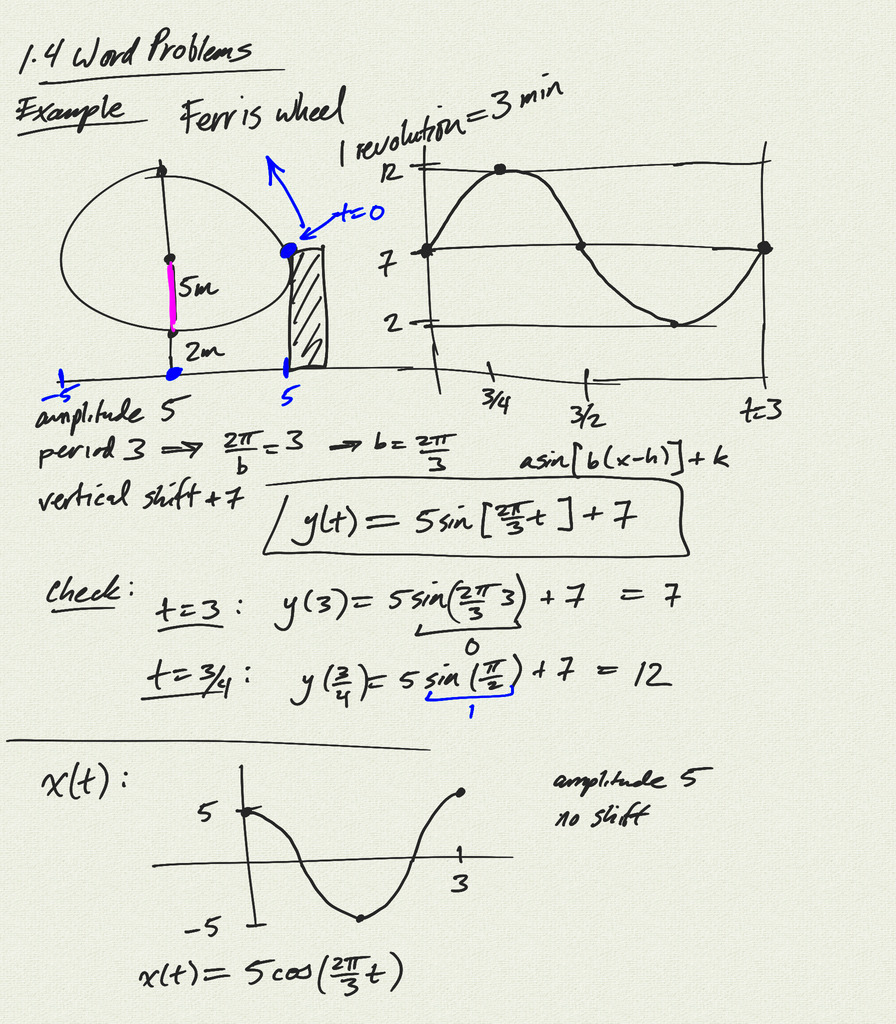 1.4 Word Problems
Example Ferris wheel
1 revolution = 3 min
t=0
5m
2m
-5
5
12
7
2
3/4
3/2
t=3
amplitude 5
period 3 ⇒ 2π/b = 3 → b = 2π/3
asin[b(x-h)]+k
vertical shift +7
y(t) = 5 sin[2π/3 t] + 7
Check:
t=3: y(3) = 5 sin(2π/3 3) + 7 = 7
0
t=3/4: y(3/4) = 5 sin(π/2) + 7 = 12
1
x(t):
5
-5
3
amplitude 5
no shift
x(t) = 5 cos(2π/3 t)